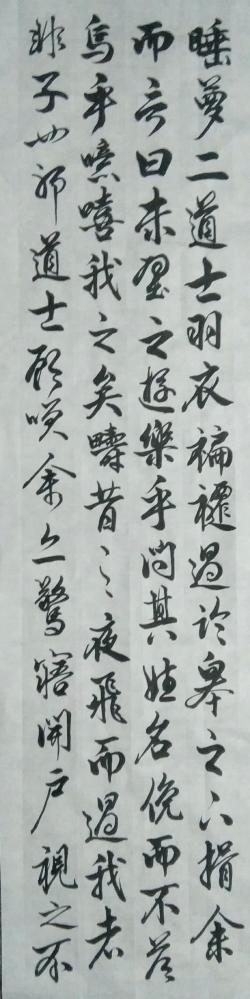 睡夢二道士羽衣褊褼過臨皋之下揖余
而言曰赤壁之遊樂乎問其姓名俛而不答
烏乎噫嘻我之矣疇昔之夜飛而過我者
非子也邪道士顧咲余亦驚寤開戶視之不